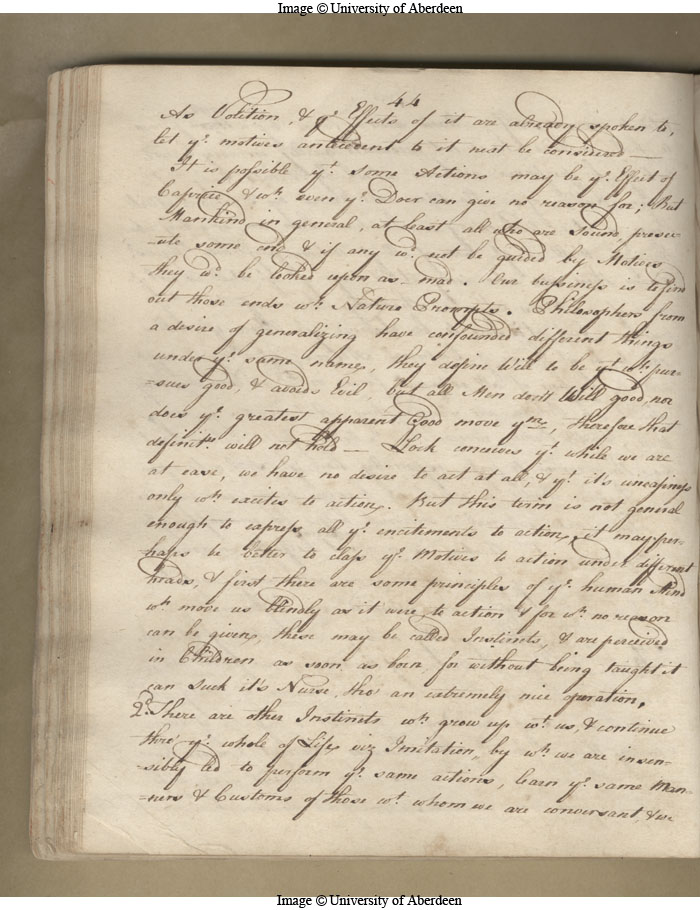 Image © University of Aberdeen
44
As Volition, & ye Effects of it are already spoken to,
let ye motives antecedent to it next be considered —
It is possible yt some Actions may be ye Effect of
Caprice & wh even ye Doer can give no reason for; But
Mankind in general, at least all who are Sound, prose-
-cute some end & if any wd not be guided by Motives
they wd be looked upon as mad. Our bussiness is to find
out those ends wh Nature Prompts. Philosophers from
a desire of generalizing have confounded different things
under ye same name, they define Will to be yt wh pur-
-sues good, & avoids Evil but all Men don't Will good, nor
does ye greatest apparent Good move ym, therefore that
definitn will not hold — Lock conceives yt while we are
at ease, we have no desire to act at all, & yt it's uneasiness
only wh excites to action. But this term is not general
enough to express all ye incitements to action, it may per-
-haps be better to class ye Motives to action under different
heads, & first there are some principles of ye human Mind
wh move us blindly as it were to action & for wh no reason
can be given, these may be called Instincts, & are perceived
in Children as soon as born, for without being taught it
can Suck it's Nurse, tho' an extremely nice operation,
2d There are other Instincts wh grow up wt us, & continue
thro' ye whole of Life, viz Imitation, by wh we are insen-
-sibly led to perform ye same actions, learn ye same Man-
-ners & Customs of those wt whom we are conversant, & we
Image © University of Aberdeen